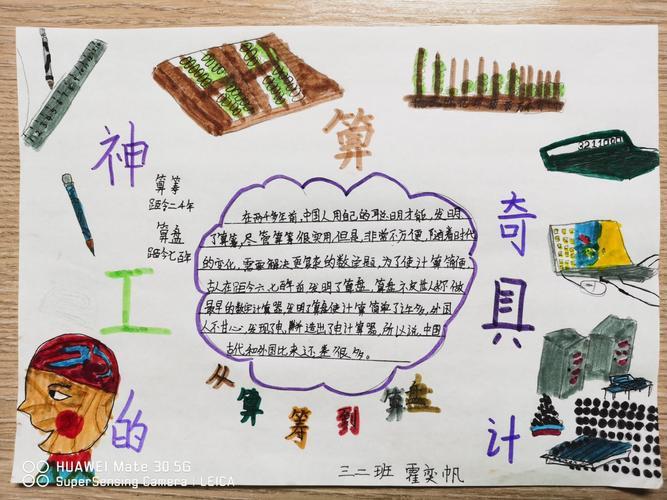 神
奇
的
计
算
工
具
9211000
算筹
距今二千年
算盘
距今七百年
在两千多年前,中国人用自己的聪明才能,发明
了算筹,尽管算筹很实用,但是,非常不方便,随着时代
的变化,需要解决更复杂的数学题,为了使计算简便,
古人在距今六、七百年前发明了算盘,算盘
最早的数字计算器,发明了算盘使计算简单了许多,外国
人不甘心,发现了电,制造出了电计算器,所以说,中国
古代和外国比来还是很多。
从算筹到算盘
三二班 霍奕帆
HUAWEI Mate 30 5G
SuperSensing Camera | LEICA